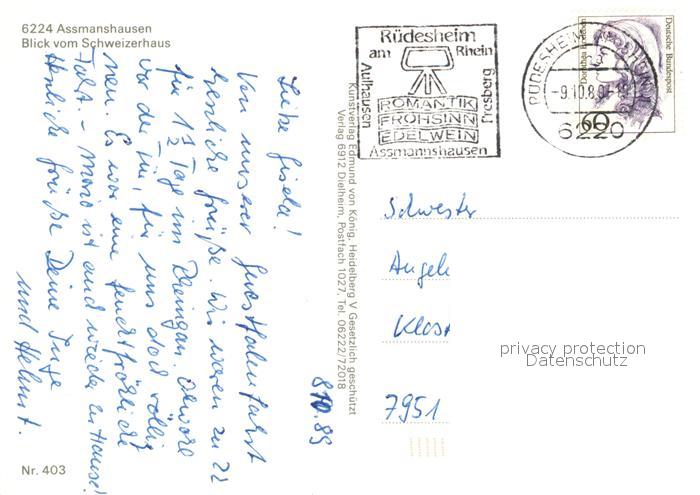 6224 Assmanshausen
Blick vom Schweizerhaus
Liebe Gisela!
Von unserer
herzliche Grüße. Wir waren zu 22
für 1½ Tage im Rheingau. Obwohl
vor der Tür, für uns doch völlig
neu. Es war eine feuchtfröhliche
Fahrt. – Morgen ist auch wieder zu Hause!
Herzliche Grüße Deine Inge
und Helmut.
8.10.89
Nr. 403
Kunstverlag Edmund von König, Heidelberg V Gesetzlich geschützt
Verlag 6912 Dielheim, Postfach 1027, Tel. 06222/72018
Rüdesheim
am Rhein
Aulhausen
Presberg
ROMANTIK
FROHSINN
EDELWEIN
Assmannshausen
RÜDESHEIM
-9.10.89-18
6220
Deutsche Bundespost
Dorothea Erxleben
60
Schwester
Angela
Klost
7951
privacy protection
Datenschutz